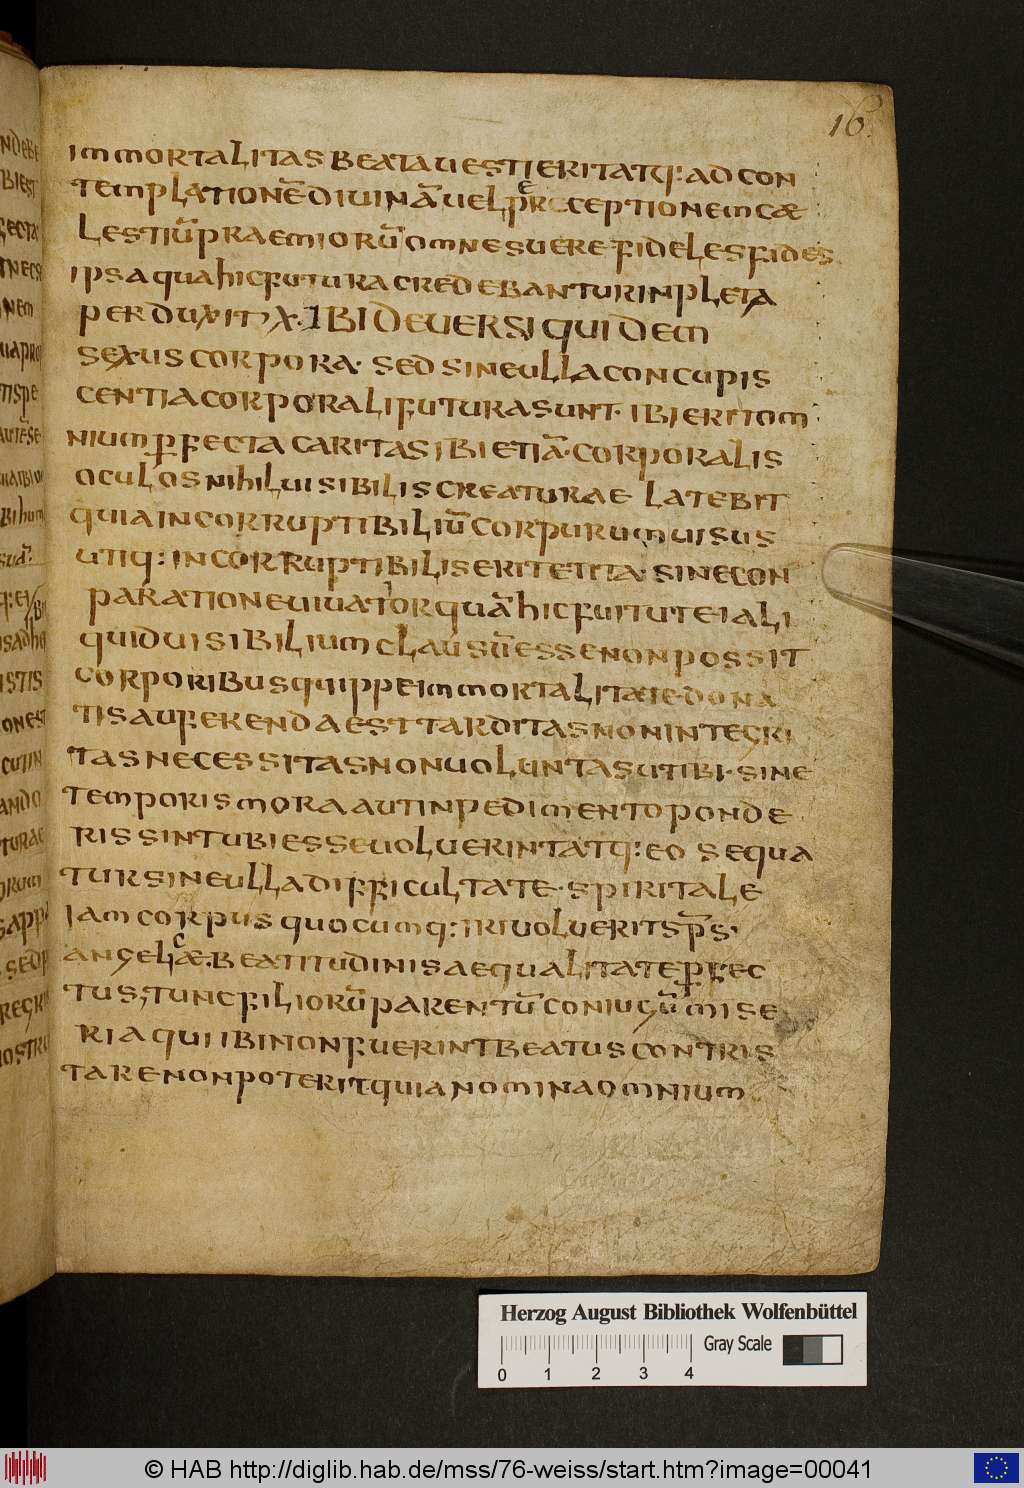 16.
immortalitas beata uestierit atq: ad con
templationē diuinā uel perceptionem cae
lestiū praemiorū omnes uere fideles fides
ipsa qua hic futura credebantur inpleta
perduxit X. Ibi deuersi quidem
sexus corpora· sed sine ulla concupis
centia corporali futura sunt· ibi erit om
nium ꝑfecta caritas ibi etiā· corporalis
oculos nihil uisibilis creaturae latebit
quia incorruptibiliū corpurum uisus
utiq: incorruptibilis erit et ita· sine con
paratione uiuatior quā hic fuit ut ei ali
quid uisibilium clausū esse non possit
corporibus quippe immortalitate dona
tis auferenda est tarditas non integri
tas necessitas non uoluntas ut ibi· sine
temporis mora aut inpedimento ponde
ris sint ubi esse uoluerint atq: eo sequa
tur sine ulla difficultate· spiritale
iam corpus quocumq: iri uoluerit sp̄s·
angelicae· beatitudinis aequalitate ꝑfec
tus; tunc filiorū parentū coniugū mise
ria qui ibi non fuerint beatus contris
tare non poterit quia nomina omnium
Herzog August Bibliothek Wolfenbüttel
Gray Scale
0 1 2 3 4
© HAB http://diglib.hab.de/mss/76-weiss/start.htm?image=00041